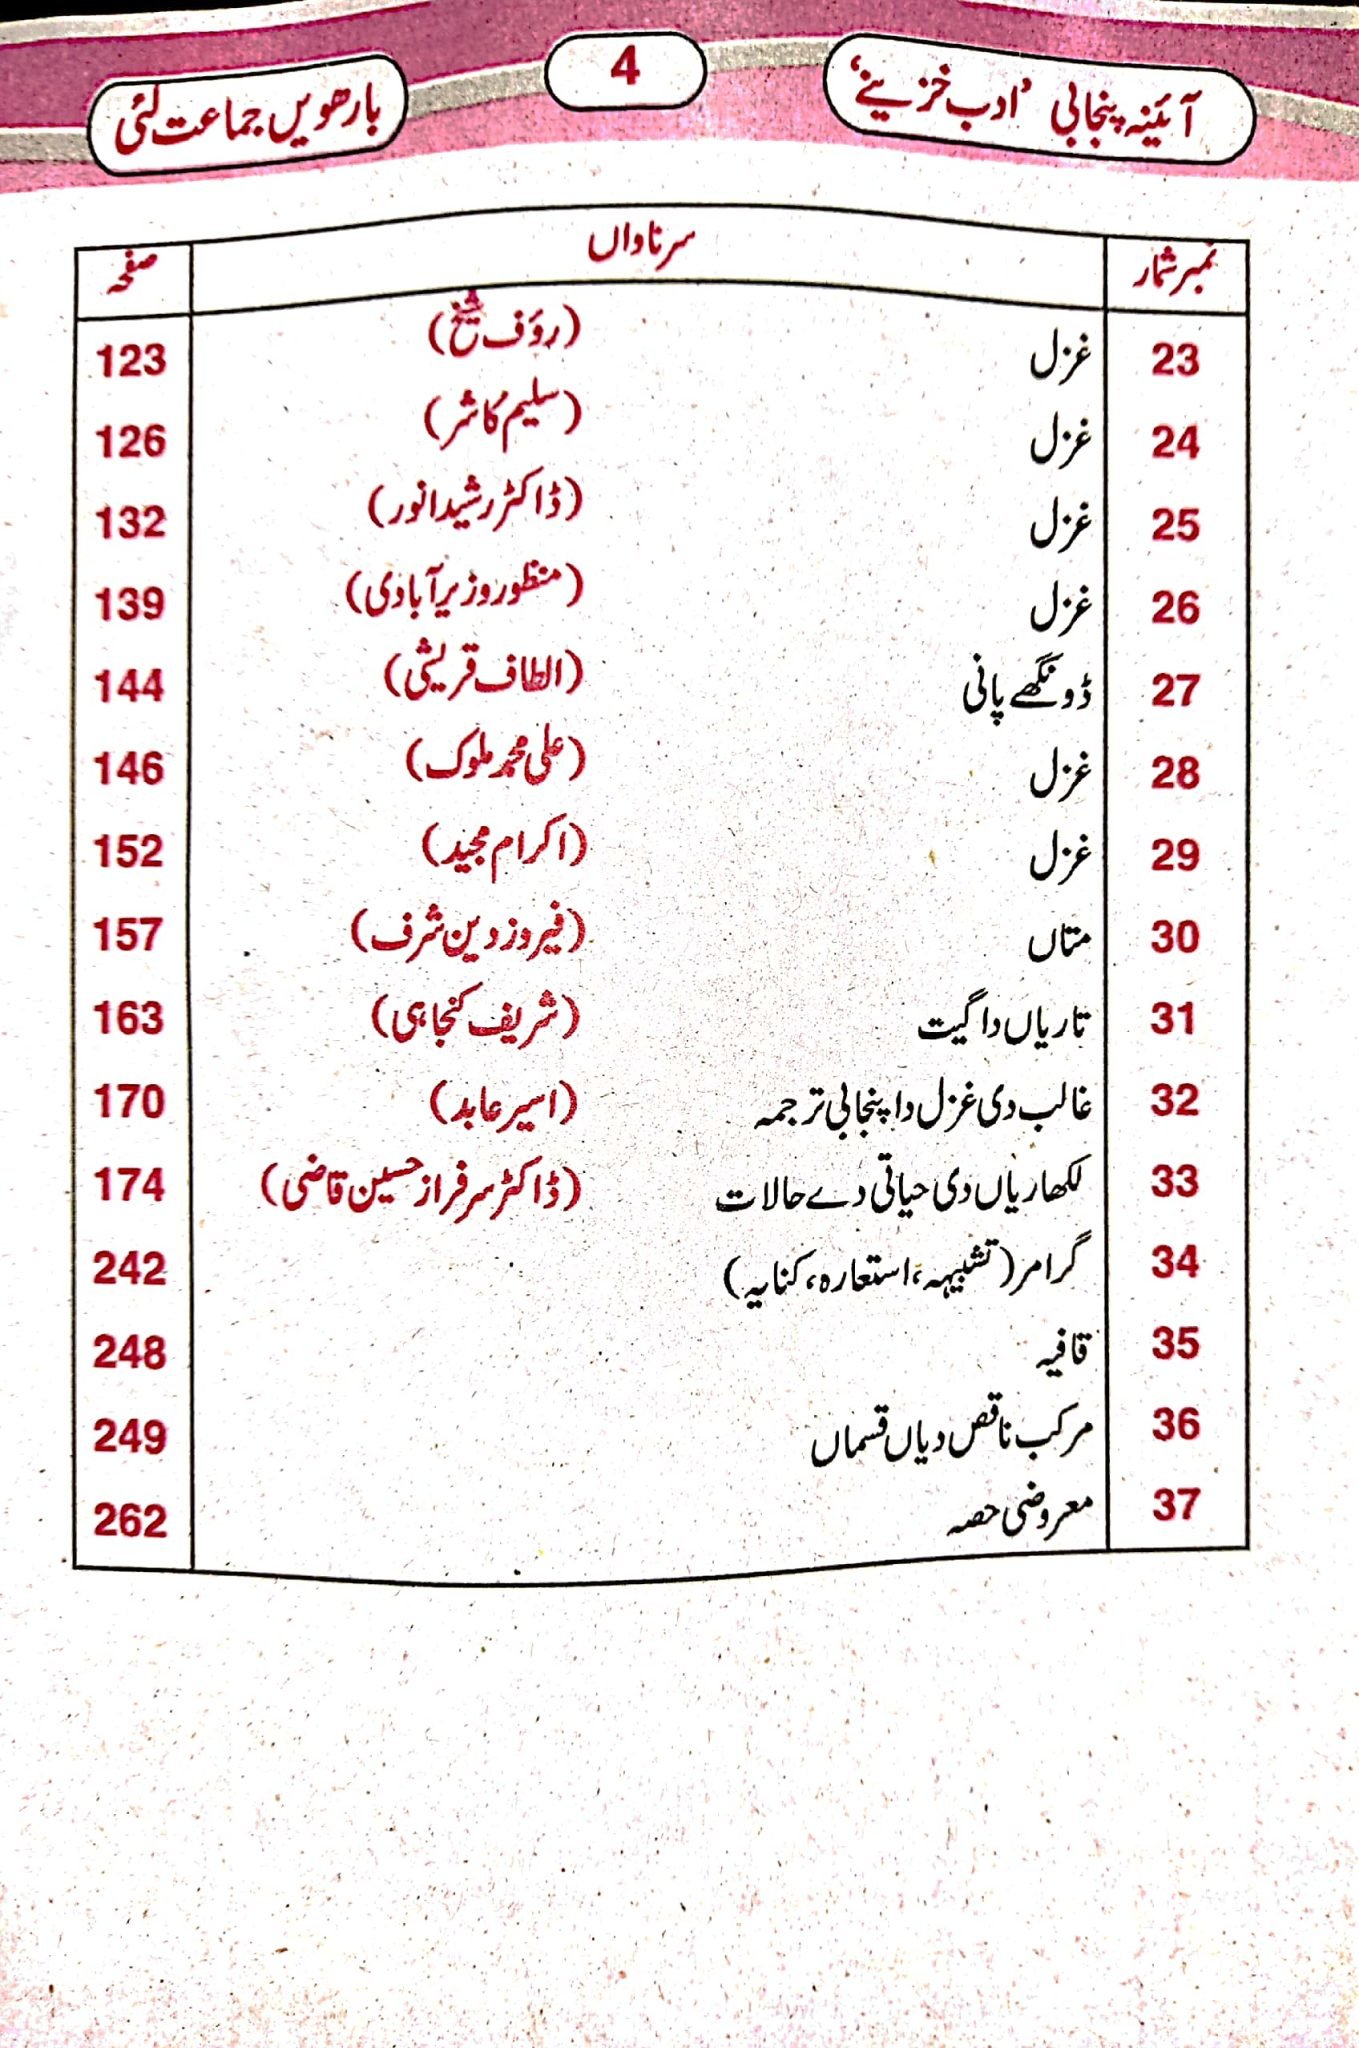 آئینہ پنجابی ’ادب خزینے‘ 4 بارھویں جماعت لئی
نمبر شمار سرناواں صفحہ
23 غزل (رؤف شیخ) 123
24 غزل (سلیم کاشر) 126
25 غزل (ڈاکٹر رشید انور) 132
26 غزل (منظور وزیر آبادی) 139
27 ڈونگھے پانی (الطاف قریشی) 144
28 غزل (علی محمد ملوک) 146
29 غزل (اکرام مجید) 152
30 متاں (فیروز دین شرف) 157
31 تاریاں دا گیت (شریف کنجاہی) 163
32 غالب دی غزل دا پنجابی ترجمہ (اسیر عابد) 170
33 لکھاریاں دی حیاتی دے حالات (ڈاکٹر سرفراز حسین قاضی) 174
34 گرامر (تشبیہہ، استعارہ، کنایہ) 242
35 قافیہ 248
36 مرکب ناقص دیاں قسماں 249
37 معروضی حصہ 262